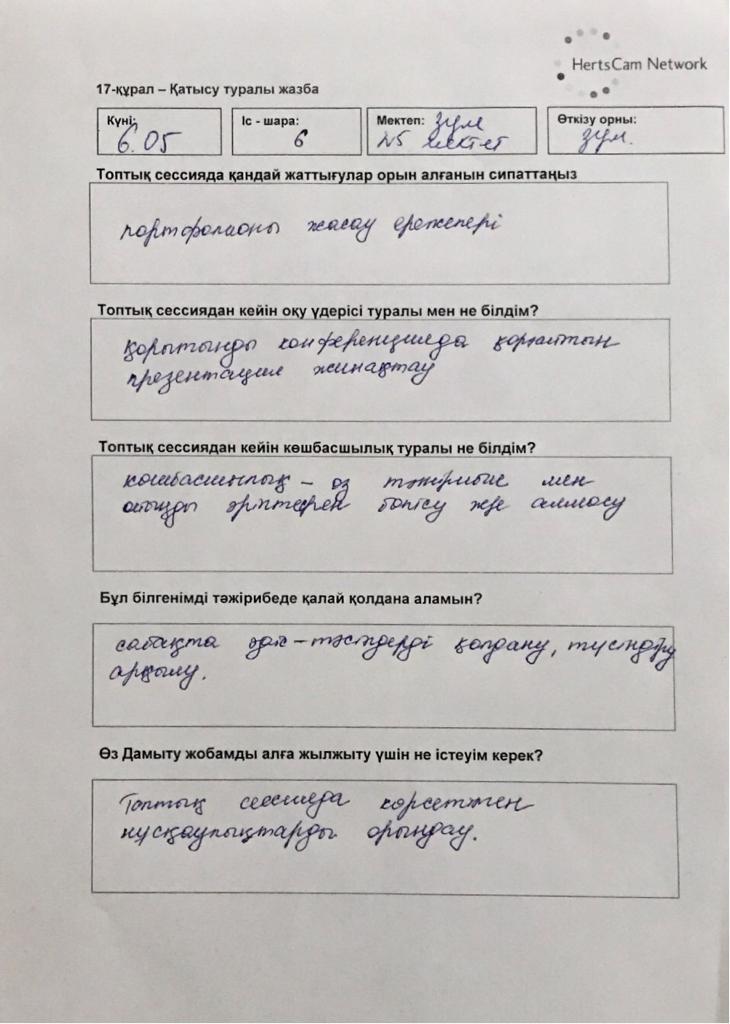 HertsCam Network
17-құрал – Қатысу туралы жазба
Күні: 6.05
Іс - шара: 6
Мектеп: зум
№5 мектеп
Өткізу орны: зум.
Топтық сессияда қандай жаттығулар орын алғанын сипаттаңыз
портфолионы жасау ережелері
Топтық сессиядан кейін оқу үдерісі туралы мен не білдім?
қорытынды конференцияда қорғайтын
презентация жинақтау
Топтық сессиядан кейін көшбасшылық туралы не білдім?
көшбасшылық – өз тәжірибие мен
ойыңды әріптеспен бөлісу және алмасу
Бұл білгенімді тәжірибеде қалай қолдана аламын?
сабақта әдіс-тәсілдерді қолдану, түсіндіру
арқылы.
Өз Дамыту жобамды алға жылжыту үшін не істеуім керек?
Топтық сессияда көрсетілген
нұсқаулықтарды орындау.